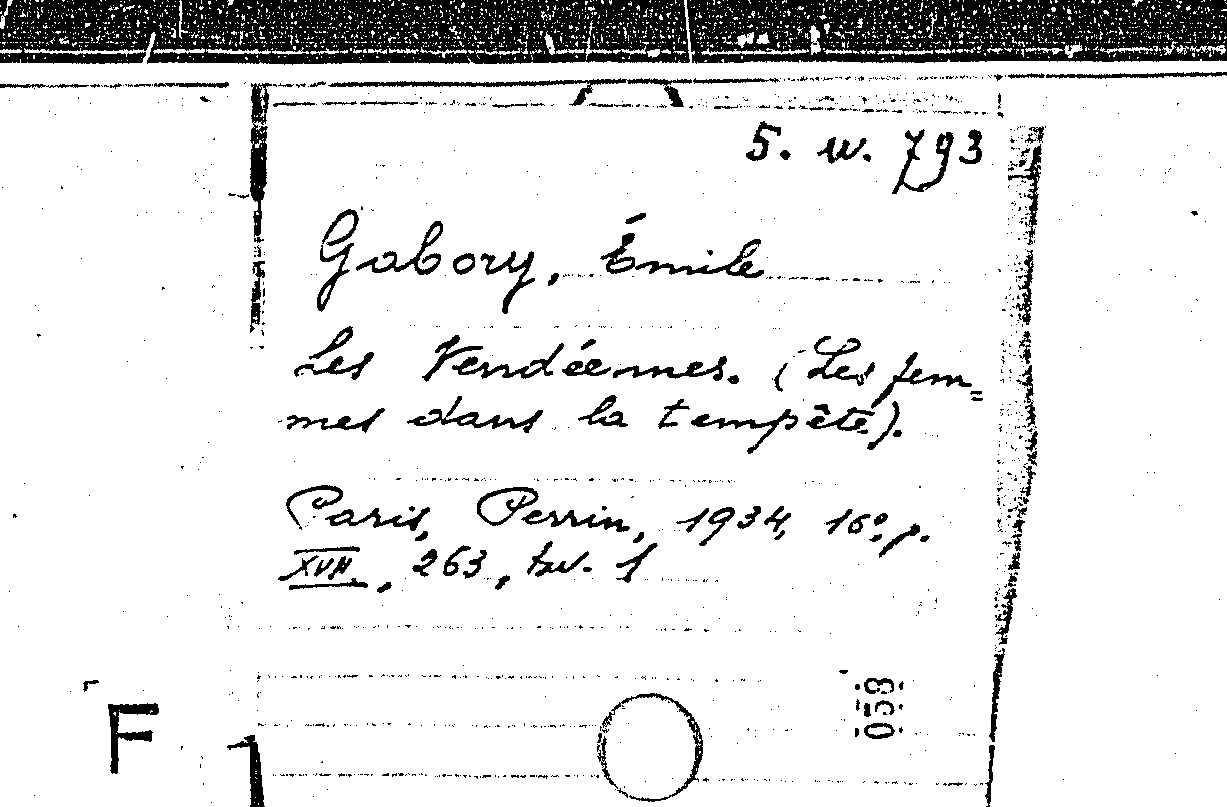 5. w. 793
Gabory, Émile
Les Vendéennes. (Les fem=
mes dans la tempête).
Paris, Perrin, 1934, 16º, p.
XVII, 263, tav. 1
058
F